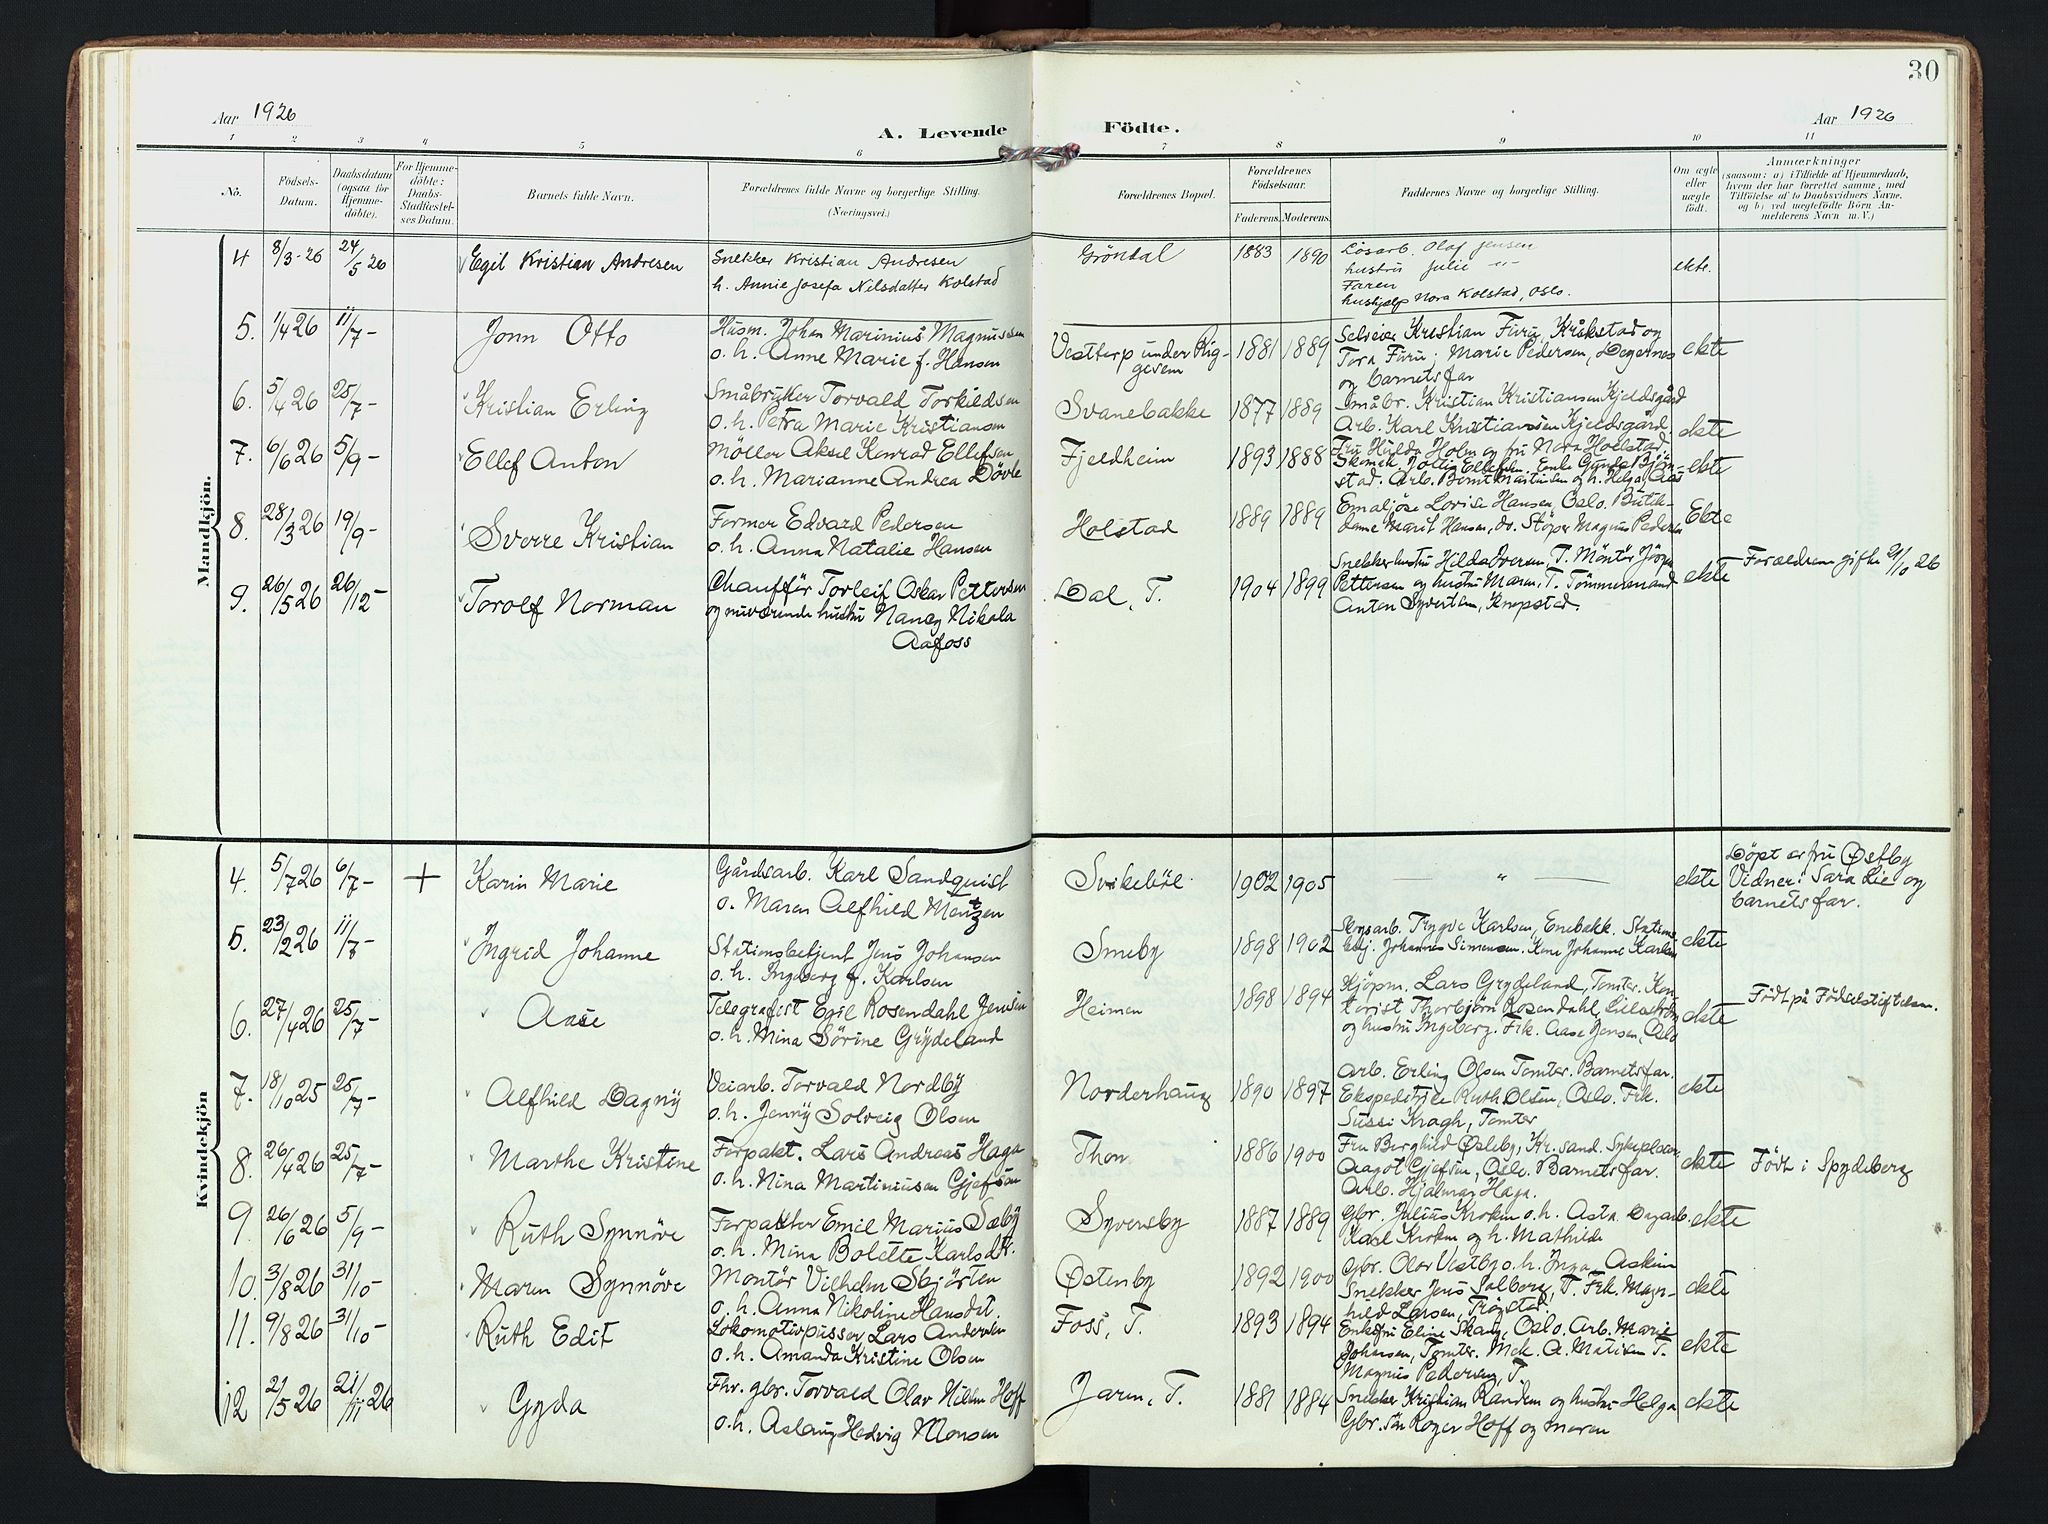 30
Aar 1926
A. Levende Födte.
Aar 1926
1 2 3 4 5 6 7 8 9 10 11
No.
Födsels-Datum.
Daabsdatum (ogsaa for Hjemme-döbte).
For Hjemme-döbte: Daabs-Stadfæstel-ses Datum.
Barnets fulde Navn.
Forældrenes fulde Navne og borgerlige Stilling.
(Næringsvei.)
Forældrenes Bopæl.
Forældrenes Födselsaar.
Faderens. Moderens.
Faddernes Navne og borgerlige Stilling.
Om ægte eller uægte födt.
Anmærkninger
(saasom: a) i Tilfælde af Hjemmedaab, hvem der har forrettet samme, med Tilföielse af to Daabsvidners Navne, og b) ved uægtefödte Börn Anmelderens Navn m. V.)
Mandkjön.
4 8/3-26 24/5 26 Egil Kristian Andresen
Snekker Kristian Andresen
h. Annie Josefa Nilsdatter Kolstad
Gröndal 1883 1890
Løsarb. Olaf Jensen
hustru Julie —"—
Faren
hushjelp Nora Kolstad, Oslo.
ekte.
5. 1/4 26 11/7- Jonn Otto
Husm. Johan Marinius Magnussen
o. h. Anne Marie f. Hansen
Vesttorp under Rig-
gesem
1881 1889
Selveier Kristian Furu, Kråkstad og
Tora Furu; Marie Pedersen, Degernes
og barnets far
ekte
6. 5/4 26 25/7- Kristian Erling
Småbruker Torvald Torkildsen
o. h. Petra Marie Kristiansen
Svanebakke 1877 1889
Småbr. Kristian Kristiansen Kjeldsgård
Arb. Karl Kristiansen Kjeldsgård.
Fru Hilda Holm og fru Nora Holstad
ekte
7. 6/6 26 5/9- Ellef Anton
Möller Aksel Konrad Ellefsen
o. h. Marianne Andrea Dövle
Fjeldheim 1893 1888
stad. Arb. Bernt Martinsen og h. Helga, Aas
ekte
8. 28/3 26 19/9- Sverre Kristian
Former Edvard Pedersen
o. h. Anna Natalie Hansen
Holstad 1889 1889
Emaljöse Lovise Hansen, Oslo. Butik-
dame Marit Hansen, do. Stöper Magnus Pedersen
Ekte
9. 26/5 26 26/12- Torolf Norman
Chaufför Torleif Oskar Pettersen
og nuværende hustru Nancy Nikola
Aafoss
Dal, T. 1904 1899
Snekkerhustru Hilda Iversen, T. Möntör Jörgen
Pettersen og hustru Maren, T. Tömmermand
Anton Syvertsen, Knapstad.
ekte
Forældrene gifte 9/10 26
Kvindekjön
4. 5/7 26 6/7- + Karin Marie
Gårdsarb. Karl Sandquist
o. Maren Alfhild Mentzen
Svikeböl 1902 1905
— " —
ekte
Döpt av fru Østby
Vidner: Sara Lie og
barnets far.
5. 23/2 26 11/7- Ingrid Johanne
Stationsbetjent Jens Johansen
o. h. Ingeborg f. Karlsen
Smeby 1898 1902
Skogsarb. Trygve Karlsen, Enebakk. Stations
betj. Johannes Simensen. Kone Johanne Karlsen
ekte
6. 27/4 26 25/7- Aase
Telegrafist Egil Rosendahl Jensen
o. h. Mina Sörine Grydeland
Heimen 1898 1894
Kjöpm. Lars Grydeland, Tomter. Kon-
torist Thorbjörn Rosendahl, Lilleström
og hustru Ingeborg. Frk. Aase Jensen, Oslo
ekte
Födt på Födselstiftelsen.
7. 18/10 25 25/7- Alfhild Dagny
Veiarb. Torvald Nordby
o. h. Jenny Solveig Olsen
Norderhaug 1890 1897
Arb. Erling Olsen Tomter. Barnets far.
Ekspeditrice Ruth Olsen, Oslo. Frk.
Sussi Kragh, Tomter
ekte
8. 26/4 26 25/7- Marthe Kristine
Forpakt. Lars Andreas Haga
o. h. Nina Martinusen Gjefsen
Thon 1886 1900
Fru Borghild Østeby, Kr.sand. Sykepleier
Aagot Gjefsen, Oslo. Barnets far.
Arb. Hjalmar Haga.
ekte
Födt i Spydeberg
9. 26/6 26 5/9- Ruth Synnöve
Forpakter Emil Marius Sæby
o. h. Mina Bolette Karlsdt.
Syversby 1887 1889
Gbr. Julius Kroken o. h. Asta. Dagarb.
Karl Kroken og h. Mathilde
ekte
10. 3/8 26 31/10- Maren Synnöve
Montör Vilhelm Skjörten
o. h. Anna Nikoline Hansdt.
Østenby 1892 1900
Gbr. Olav Vestby o. h. Inga, Askim
Snekker Jens Solberg, T. Frk. Magn-
hild Larsen, Trögstad.
ekte
11. 9/8 26 31/10- Ruth Edit
Lokomotivpusser Lars Andersen
o. h. Amanda Kristine Olsen
Foss, T. 1893 1894
Enkefru Eline Skaug, Oslo. Arb. Marie
Johansen, Tomter. Mek. A. Matisen T.
Magnus Pedersen, T.
ekte
12 2/5 26 21/11 26 Gyda
Fhr. gbr. Torvald Olav Nilsen Hoff
o. h. Aslaug Hedvig Monsen
Jaren, T. 1881 1884
Snekker Kristian Randem og hustru Helga
Gbr. sön Roger Hoff og moren
ekte